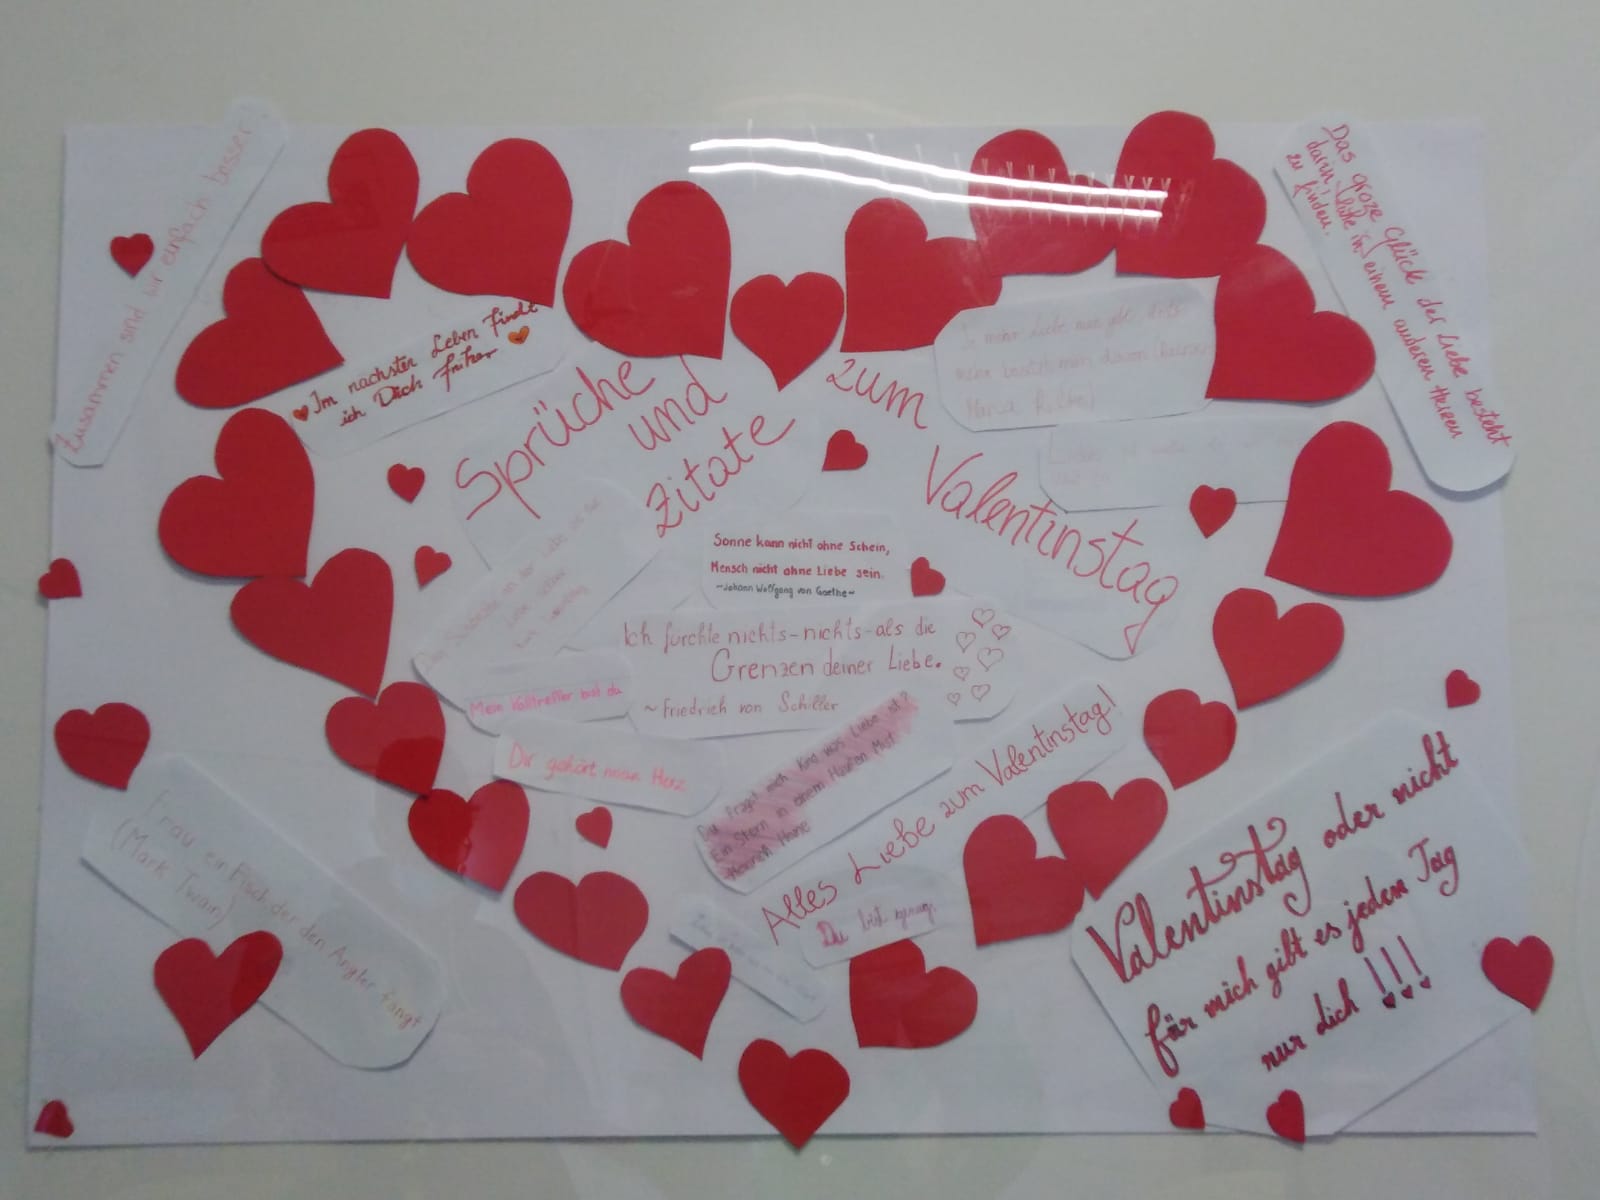 Zusammen sind wir einfach besser
Im nächsten Leben findet
ich Dich früher
Sprüche
und
Zitate
zum
Valentinstag
Je mehr Liebe man gibt, desto
mehr besitzt man davon (Rainer
Maria Rilke)
Das groze Glück der Liebe besteht
darin, Liebe in einem anderen Herzen
zu finden.
Sonne kann nicht ohne Schein,
Mensch nicht ohne Liebe sein.
~Johann Wolfgang von Goethe~
Ich fürchte nichts-nichts-als die
Grenzen deiner Liebe.
~Friedrich von Schiller
Mein Volltreffer bist du
Dir gehört mein Herz
Du fragst mich Kind was Liebe ist?
Ein Stern in einem Haufen Mist
Heinrich Heine
Alles Liebe zum Valentinstag!
Du bist
Frau ein Fisch der den Angler fängt
(Mark Twain)
Valentinstag oder nicht
für mich gibt es jeden Tag
nur dich !!!